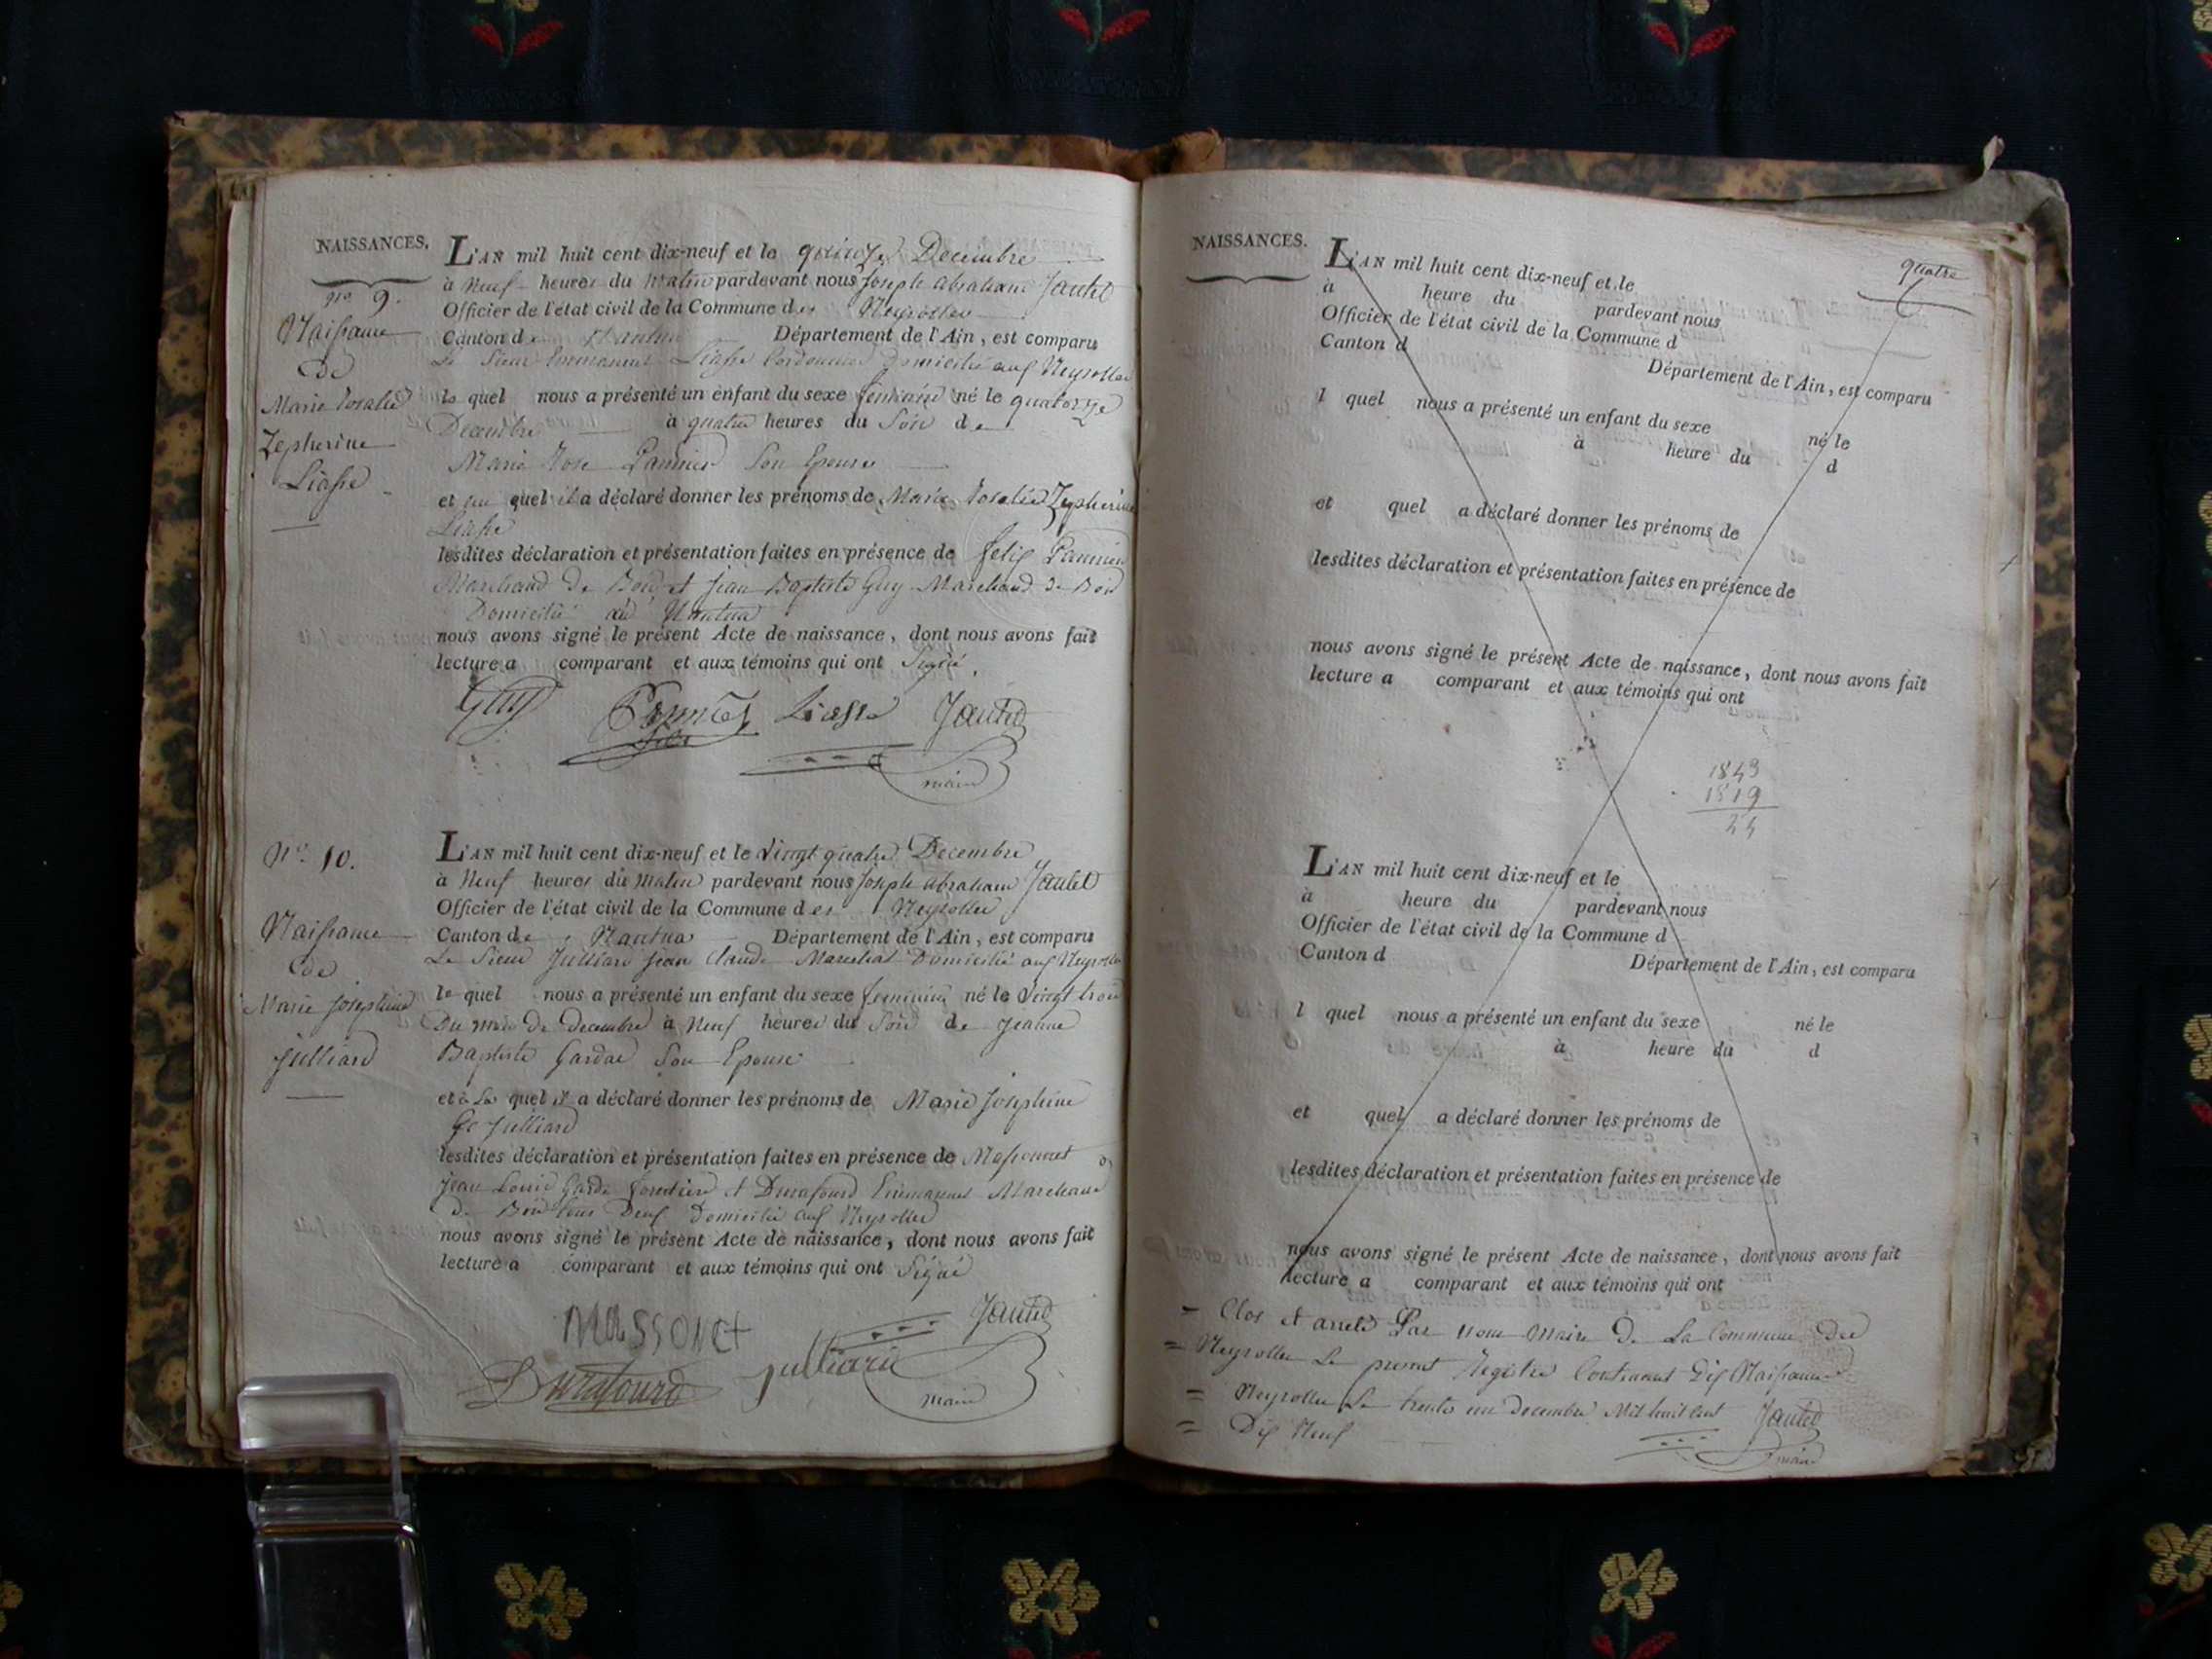 NAISSANCES.
L'AN mil huit cent dix-neuf et le quinze Decembre
à Neuf heures du Matin pardevant nous Joseph Abraham Jantet
Officier de l'état civil de la Commune des Neyrolles
Canton de Nantua Département de l'Ain, est comparu
Le Sieur Emmanuel Liasse Cordonnier Domicilié aux Neyrolles
le quel nous a présenté un enfant du sexe feminin né le quatorze
Decembre à quatre heures du Soir de
Marie Rose Pannier Son Epouse
et au quel il a déclaré donner les prénoms de Marie Rosalie Zepherine
Liasse
lesdites déclaration et présentation faites en présence de felix Pannier
Marchand de Bois et Jean Baptiste Guy Marchand de Bois
Domicilié à Nantua
nous avons signé le présent Acte de naissance, dont nous avons fait
lecture a comparant et aux témoins qui ont Signé.
no. 9.
Naissance
de
Marie Rosalie
Zepherine
Liasse
Guy Liasse Jantet
maire
N°. 10.
Naissance
de
Marie Josephine
Julliard
L'AN mil huit cent dix-neuf et le Vingt quatre Decembre
à Neuf heures du Matin pardevant nous Joseph Abraham Jantet
Officier de l'état civil de la Commune des Neyrolles
Canton de Nantua Département de l'Ain, est comparu
Le Sieur Julliard Jean Claude Marechal Domicilié aux Neyrolles
le quel nous a présenté un enfant du sexe feminin né le Vingt trois
Du mois de Decembre à Neuf heures du Soir de Jeanne
Baptiste Son Epouse
et à La quel il a déclaré donner les prénoms de Marie Josephine
Julliard
lesdites déclaration et présentation faites en présence de Massonnet
Jean Louis Garde forestier et Durafourd Emmanuel Marchand
de Bois tous Deux Domicilié aux Neyrolles
nous avons signé le présent Acte de naissance, dont nous avons fait
lecture a comparant et aux témoins qui ont Signé
Massonet Jantet
Durafourd Julliard maire
NAISSANCES.
quatre
L'AN mil huit cent dix-neuf et le
à heure du pardevant nous
Officier de l'état civil de la Commune d
Canton d Département de l'Ain, est comparu
l quel nous a présenté un enfant du sexe né le
à heure du d
et quel a déclaré donner les prénoms de
lesdites déclaration et présentation faites en présence de
nous avons signé le présent Acte de naissance, dont nous avons fait
lecture a comparant et aux témoins qui ont
1843
1819
24
L'AN mil huit cent dix-neuf et le
à heure du pardevant nous
Officier de l'état civil de la Commune d
Canton d Département de l'Ain, est comparu
l quel nous a présenté un enfant du sexe né le
à heure du d
et quel a déclaré donner les prénoms de
lesdites déclaration et présentation faites en présence de
nous avons signé le présent Acte de naissance, dont nous avons fait
lecture a comparant et aux témoins qui ont
= Clos et arreté Par nous Maire de La Commune Des
= Neyrolles Le present Registre Contenant Dix Naissances
= Neyrolles Le trente un Decembre Mil huit Cent Jantet
= Dix Neuf maire